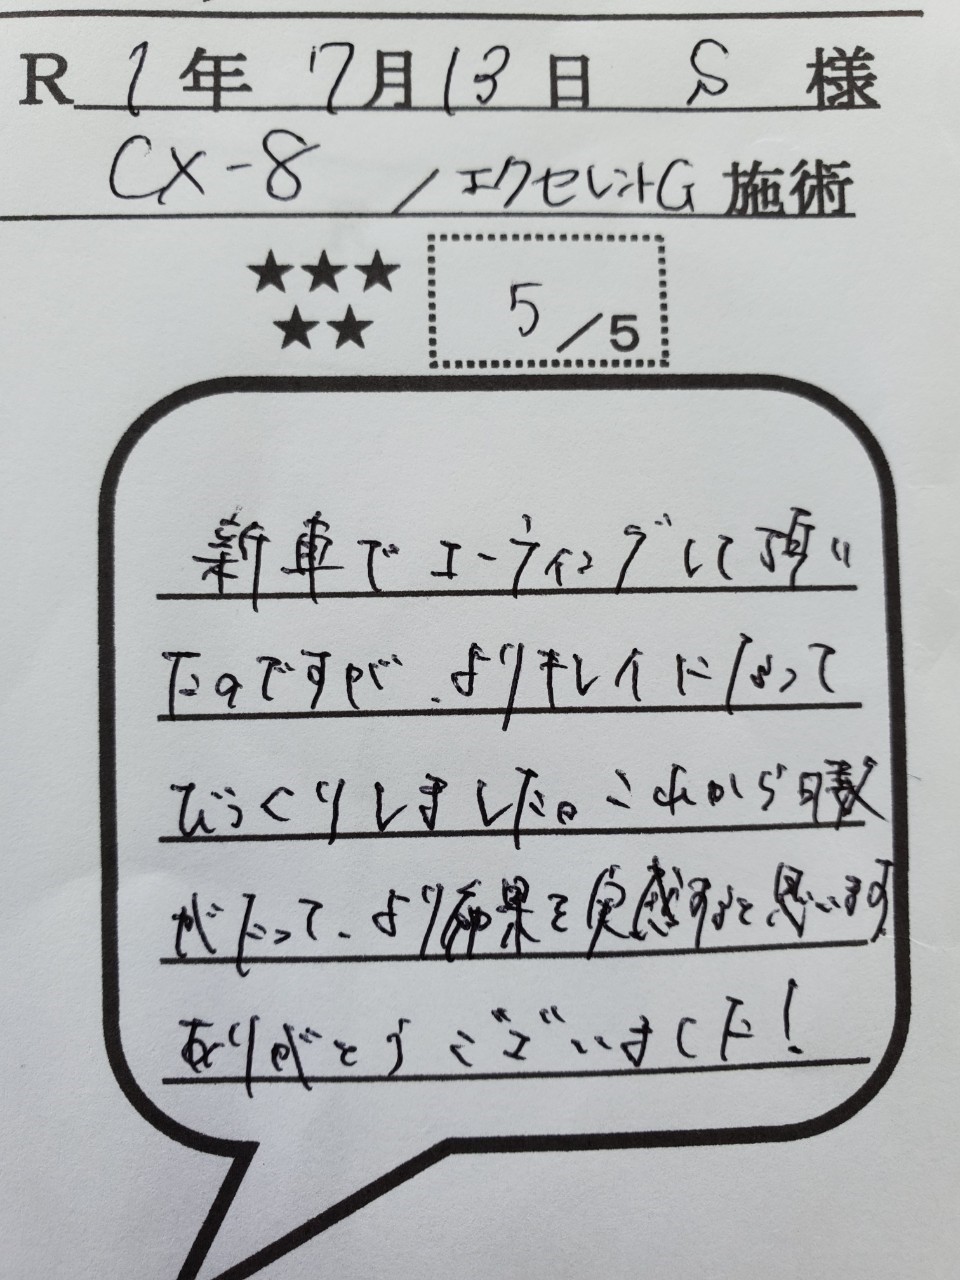 R 7年 7月 13日 S 様
CX-8 /エクセレントG 施術
★★★
★★
5/5
新車でコーティングして頂い
たのですが、よりキレイになって
びっくりしました。これから日数
がたって、より効果を実感すると思います
ありがとうございました!